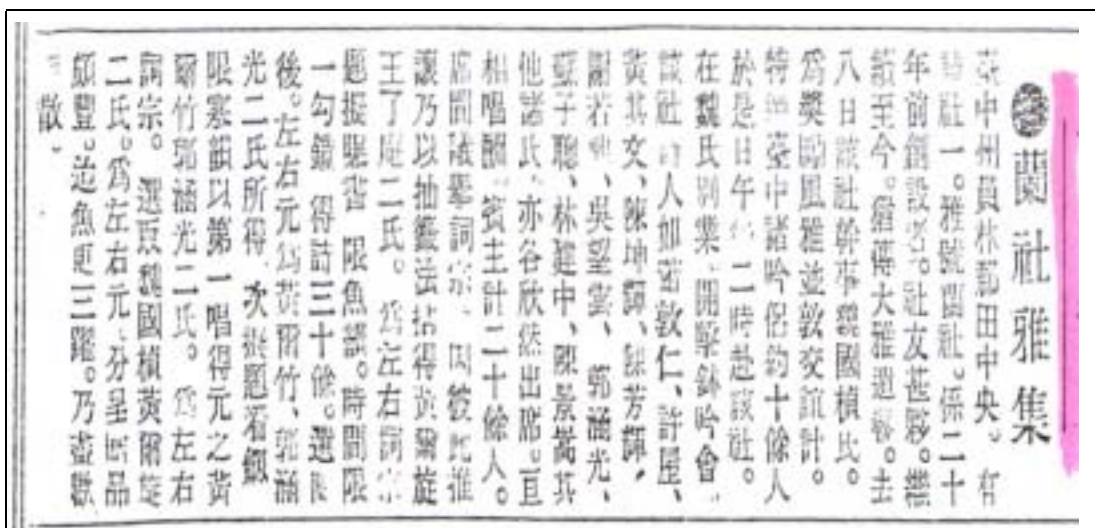 蘭社雅集
臺中州員林郡田中央。有
詩社一。雅號蘭社。係二十
年前創設者。社友甚夥。繼
續至今。猶傳大雅遺。去
八日該社幹事魏國楨氏。
為獎勵風雅並敦交誼計。
特臺中諸吟侶約十餘人
於是日午二時赴該社。
在魏氏別業、開擊鉢吟會。
該社詩人如敦仁、許屋、
黃其文、陳坤輝、芳輝、
謝若、吳望雲、郭涵光、
子聰、林建中、陳景嵩其
他諸氏、亦各欣然出席。互
相唱酬。賓主計二十餘人。
席間議舉詞宗、因彼此推
讓乃以抽籤法拈得黃爾旋
王了庵二氏。為左右詞宗
題擬 限魚韻。時間限
一句鐘 得詩三十餘。選
後。左右元為黃爾竹、郭涵
光二氏所得、次擬題看劍
限寒韻以第一唱得元之黃
爾竹郭涵光二氏。為左右
詞宗。選取魏國楨黃爾旋
二氏。為左右元、分呈品
頗豐。迄魚更三躍。乃盡歡
而散。